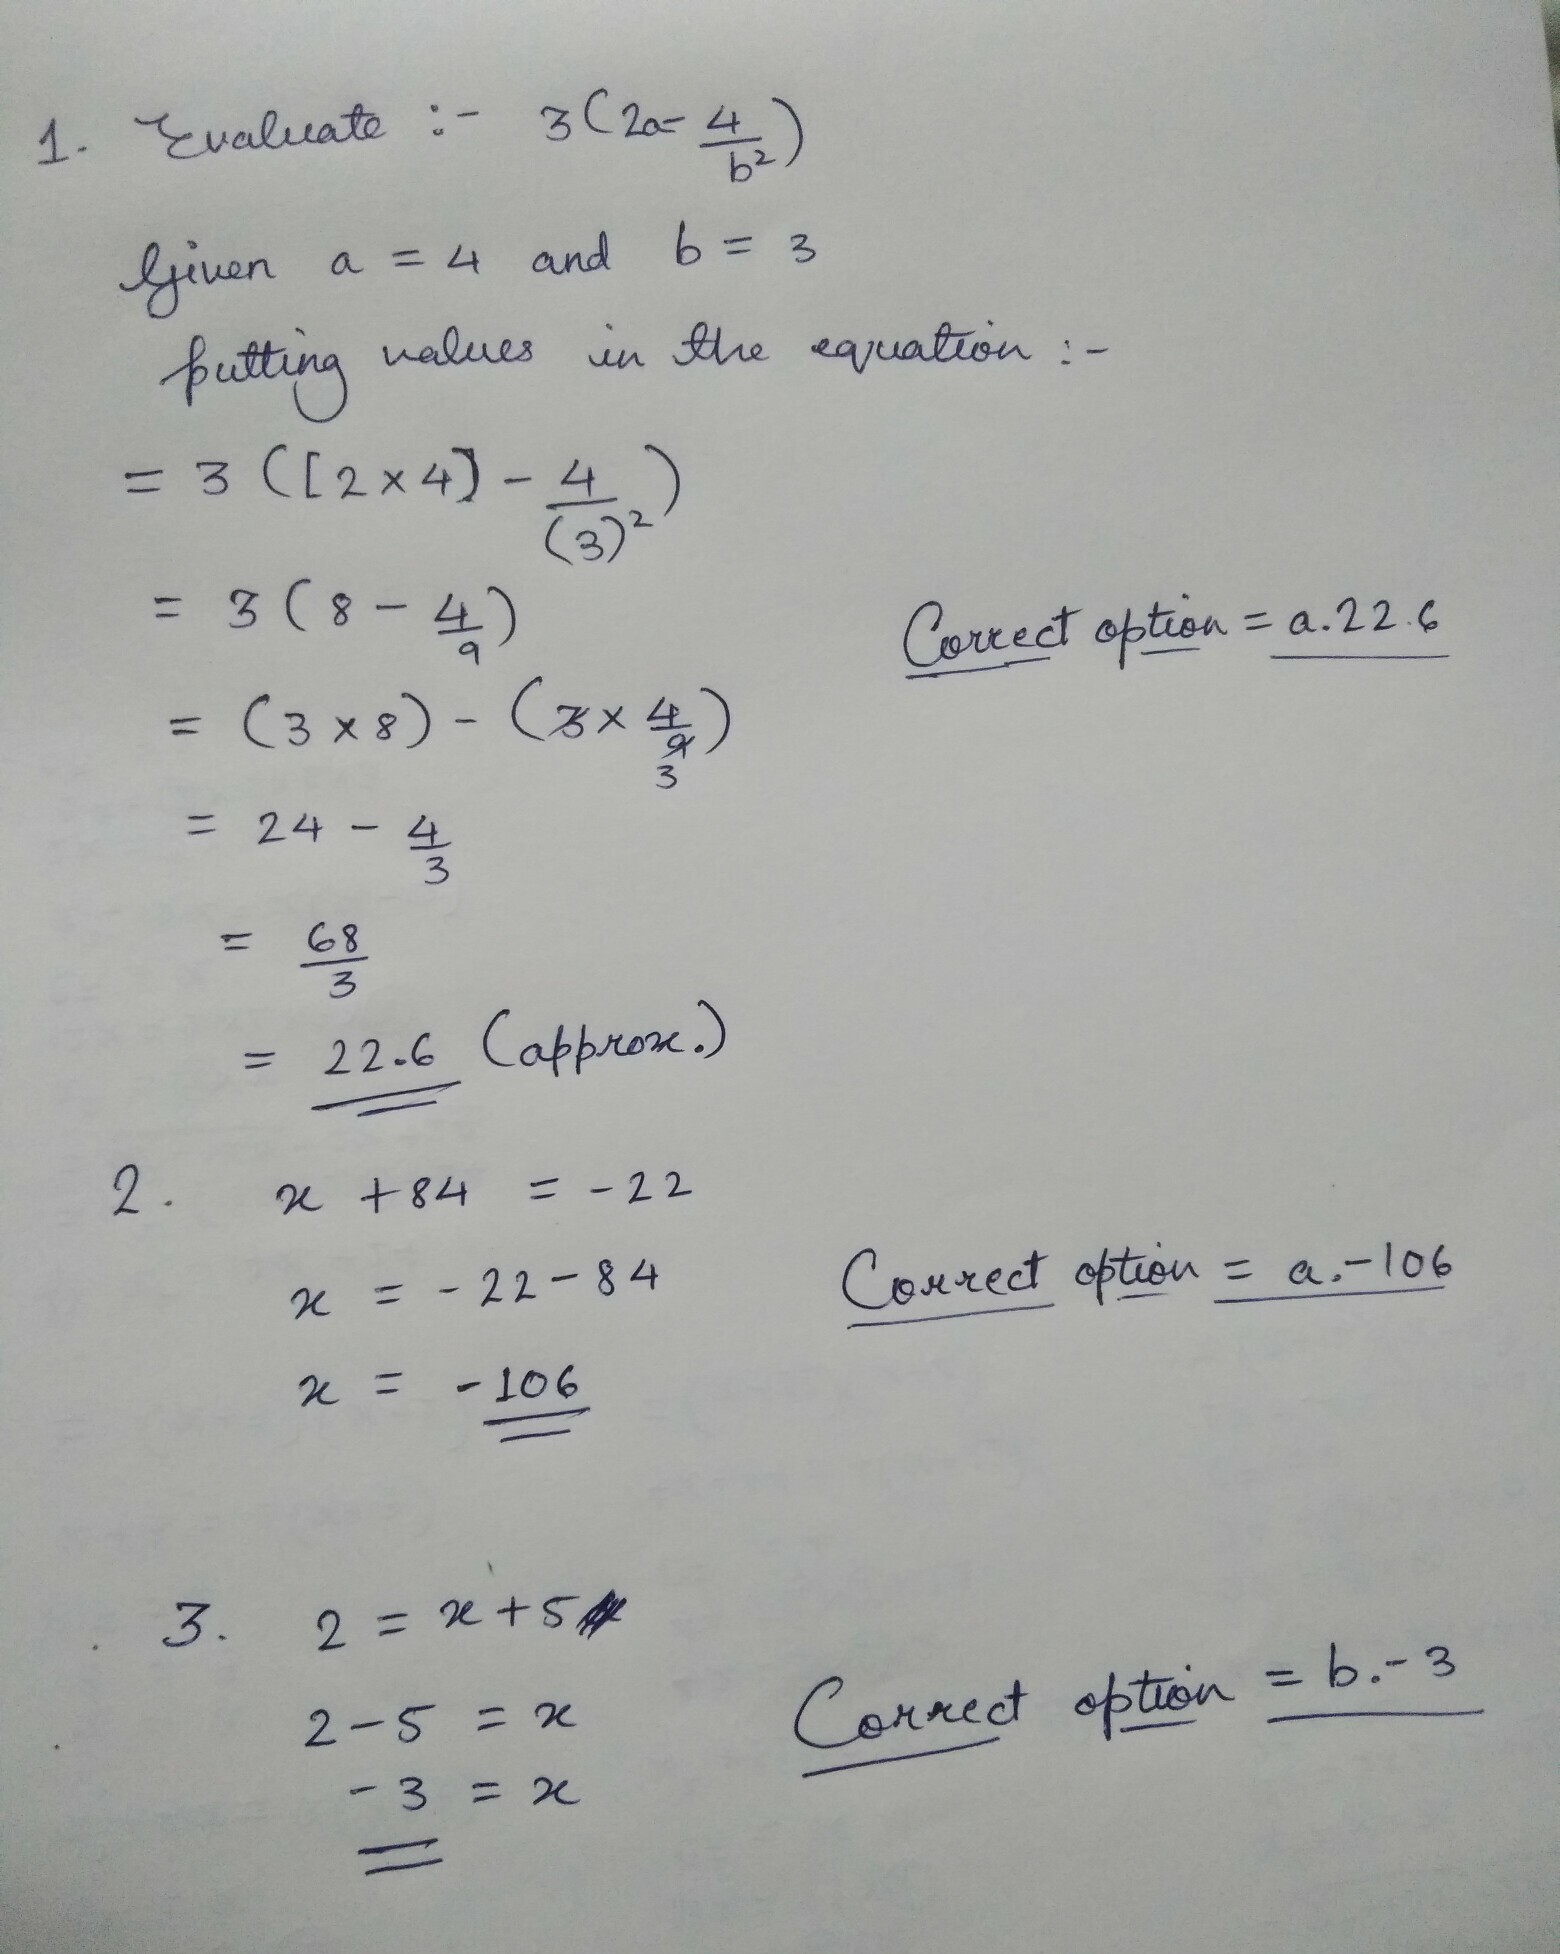 1. Evaluate :- 3(2a-4/b²)
Given a = 4 and b = 3
putting values in the equation :-
= 3 ([2×4] - 4/(3)²)
= 3(8 - 4/9)
Correct option = a.22.6
= (3×8) - (3×4/9)
3
= 24 - 4/3
= 68/3
= 22.6 (approx.)
2. x +84 = -22
x = -22-84
Correct option = a.-106
x = -106
3. 2 = x+5
2-5 = x
Correct option = b.-3
-3 = x